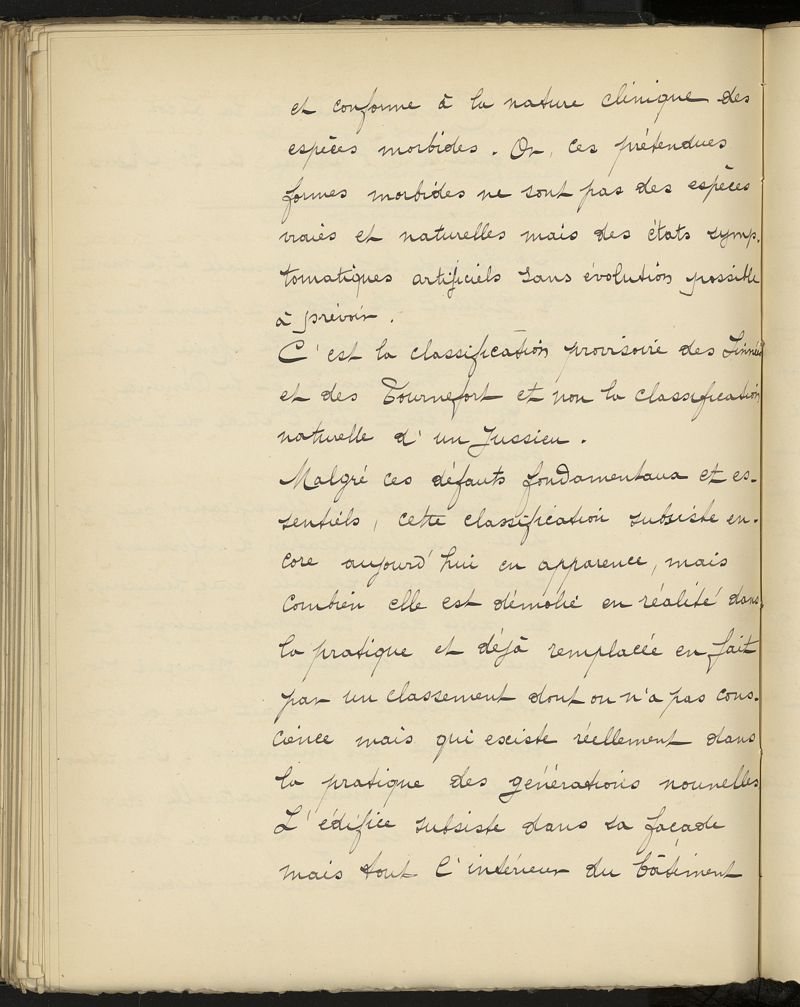 et conforme à la nature clinique des
espèces morbides. Or, ces prétendues
formes morbides ne sont pas des espèces
vraies et naturelles mais des états symp-
tomatiques artificiels sans évolution possible
à prévoir.
C'est la classification provisoire des Linnée
et des Tournefort et non la classification
naturelle d'un Jussieu.
Malgré ces défauts fondamentaux et es-
sentiels, cette classification subsiste en-
core aujourd'hui en apparence, mais
combien elle est démolie en réalité dans
la pratique et déjà remplacée en fait
par un classement dont on n'a pas cons-
cience mais qui existe réellement dans
la pratique des générations nouvelles
L'édifice subsiste dans sa façade
mais tout l'intérieur du bâtiment